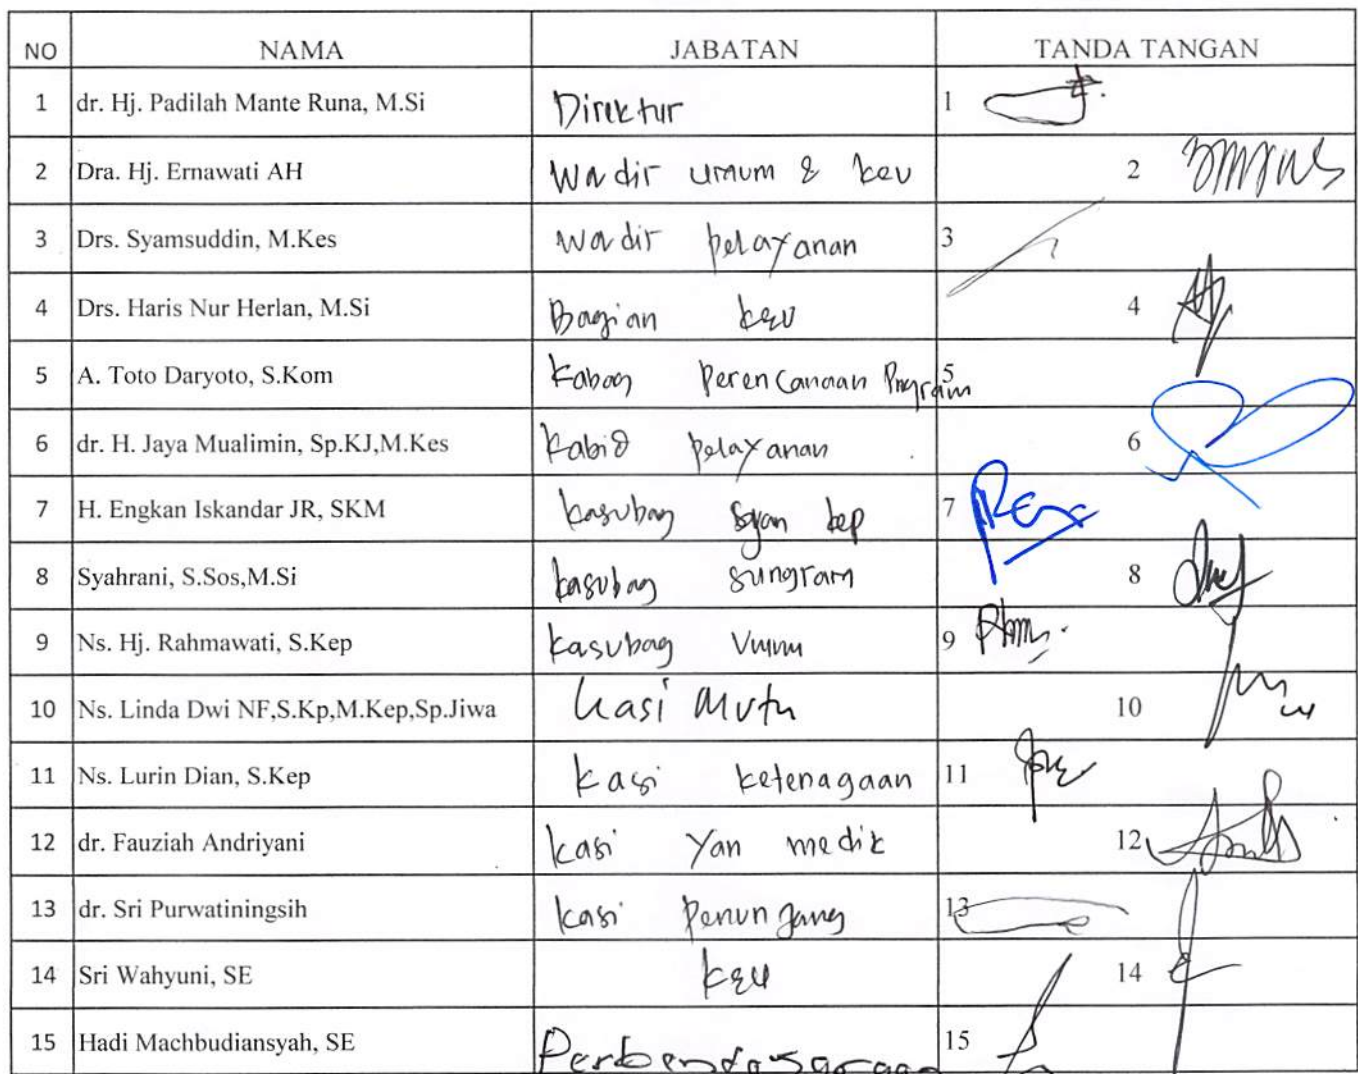 NO NAMA JABATAN TANDA TANGAN
1 dr. Hj. Padilah Mante Runa, M.Si Direktur 1
2 Dra. Hj. Ernawati AH Wadir umum & keu 2
3 Drs. Syamsuddin, M.Kes Wadir pelayanan 3
4 Drs. Haris Nur Herlan, M.Si Bagian keu 4
5 A. Toto Daryoto, S.Kom Kabag Perencanaan Program 5
6 dr. H. Jaya Mualimin, Sp.KJ,M.Kes Kabid pelayanan 6
7 H. Engkan Iskandar JR, SKM kasubag kep 7
8 Syahrani, S.Sos,M.Si kasubag sungram 8
9 Ns. Hj. Rahmawati, S.Kep kasubag Umum 9
10 Ns. Linda Dwi NF,S.Kp,M.Kep,Sp.Jiwa Kasi Mutu 10
11 Ns. Lurin Dian, S.Kep kasi ketenagaan 11
12 dr. Fauziah Andriyani kasi Yan medik 12
13 dr. Sri Purwatiningsih kasi Penunjang 13
14 Sri Wahyuni, SE keu 14
15 Hadi Machbudiansyah, SE 15